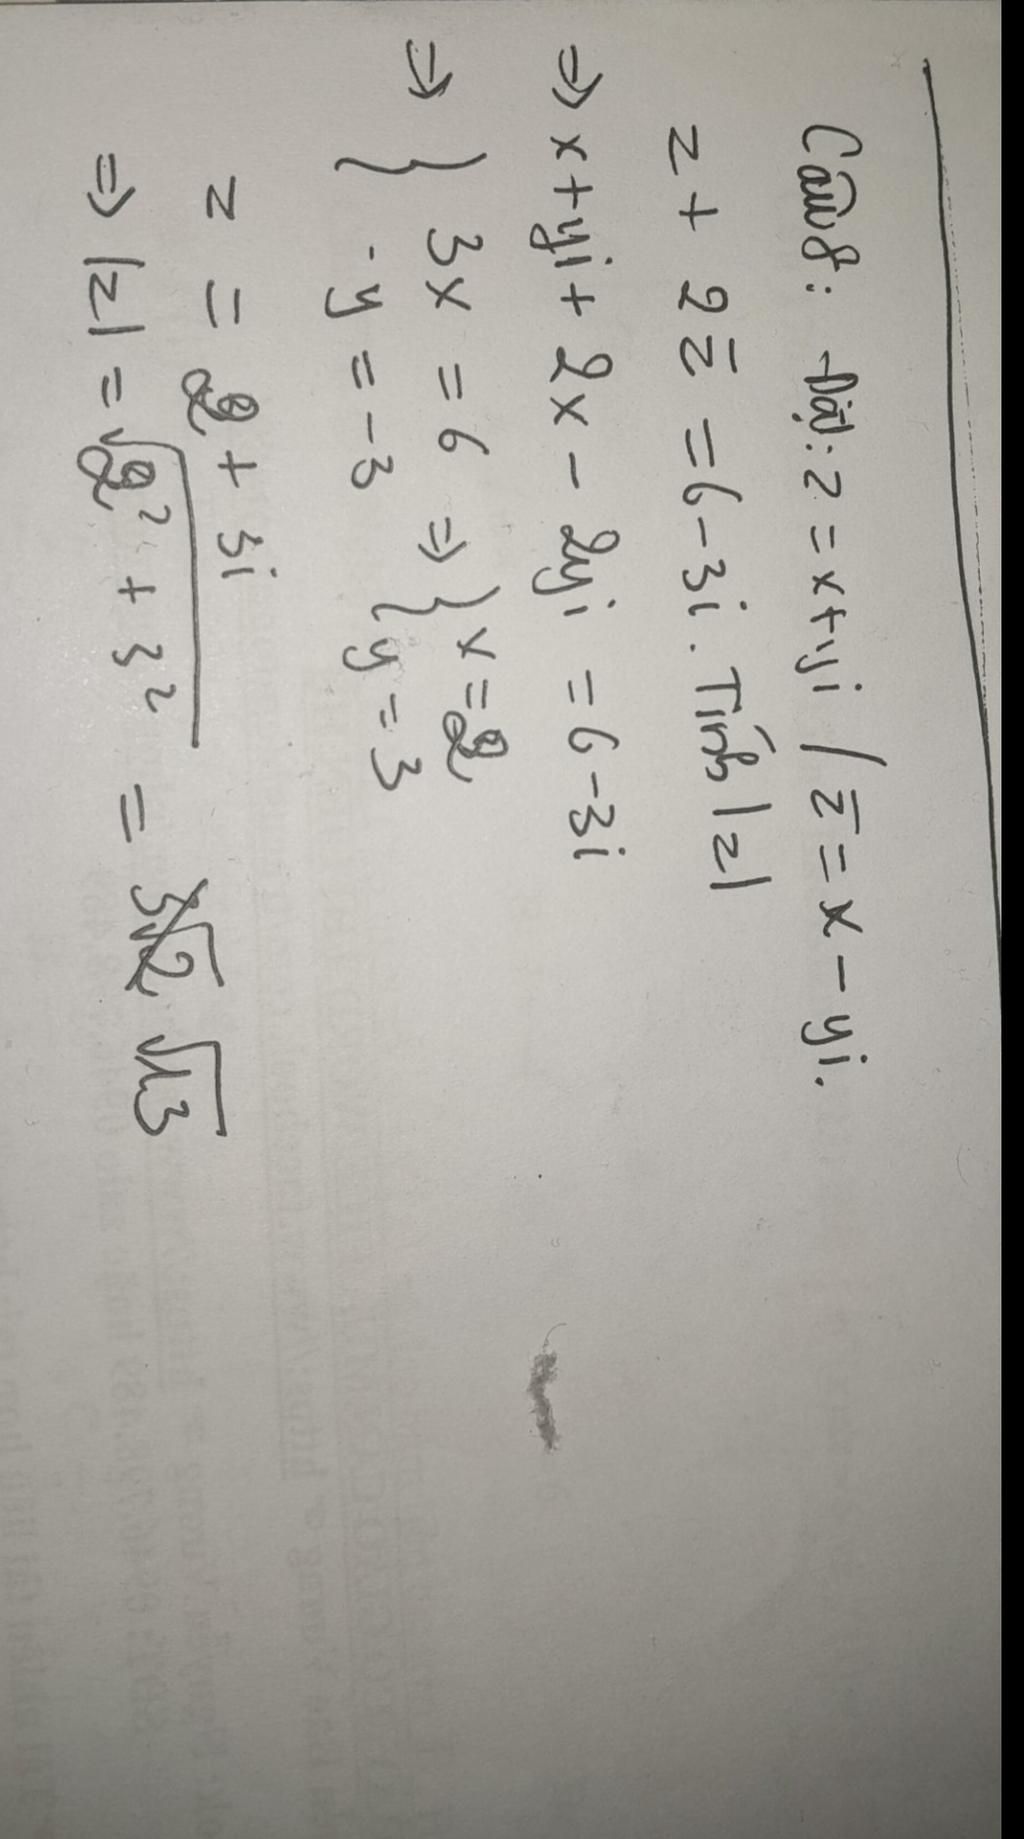 Câu 8: Đặt: z = x + yi / z̅ = x - yi.
z + 2z̅ = 6 - 3i. Tính |z|
⇒ x + yi + 2x - 2yi = 6 - 3i
⇒ { 3x = 6 ⇒ { x = 2
-y = -3 y = 3
z = 2 + 3i
⇒ |z| = √(2² + 3²) = √13